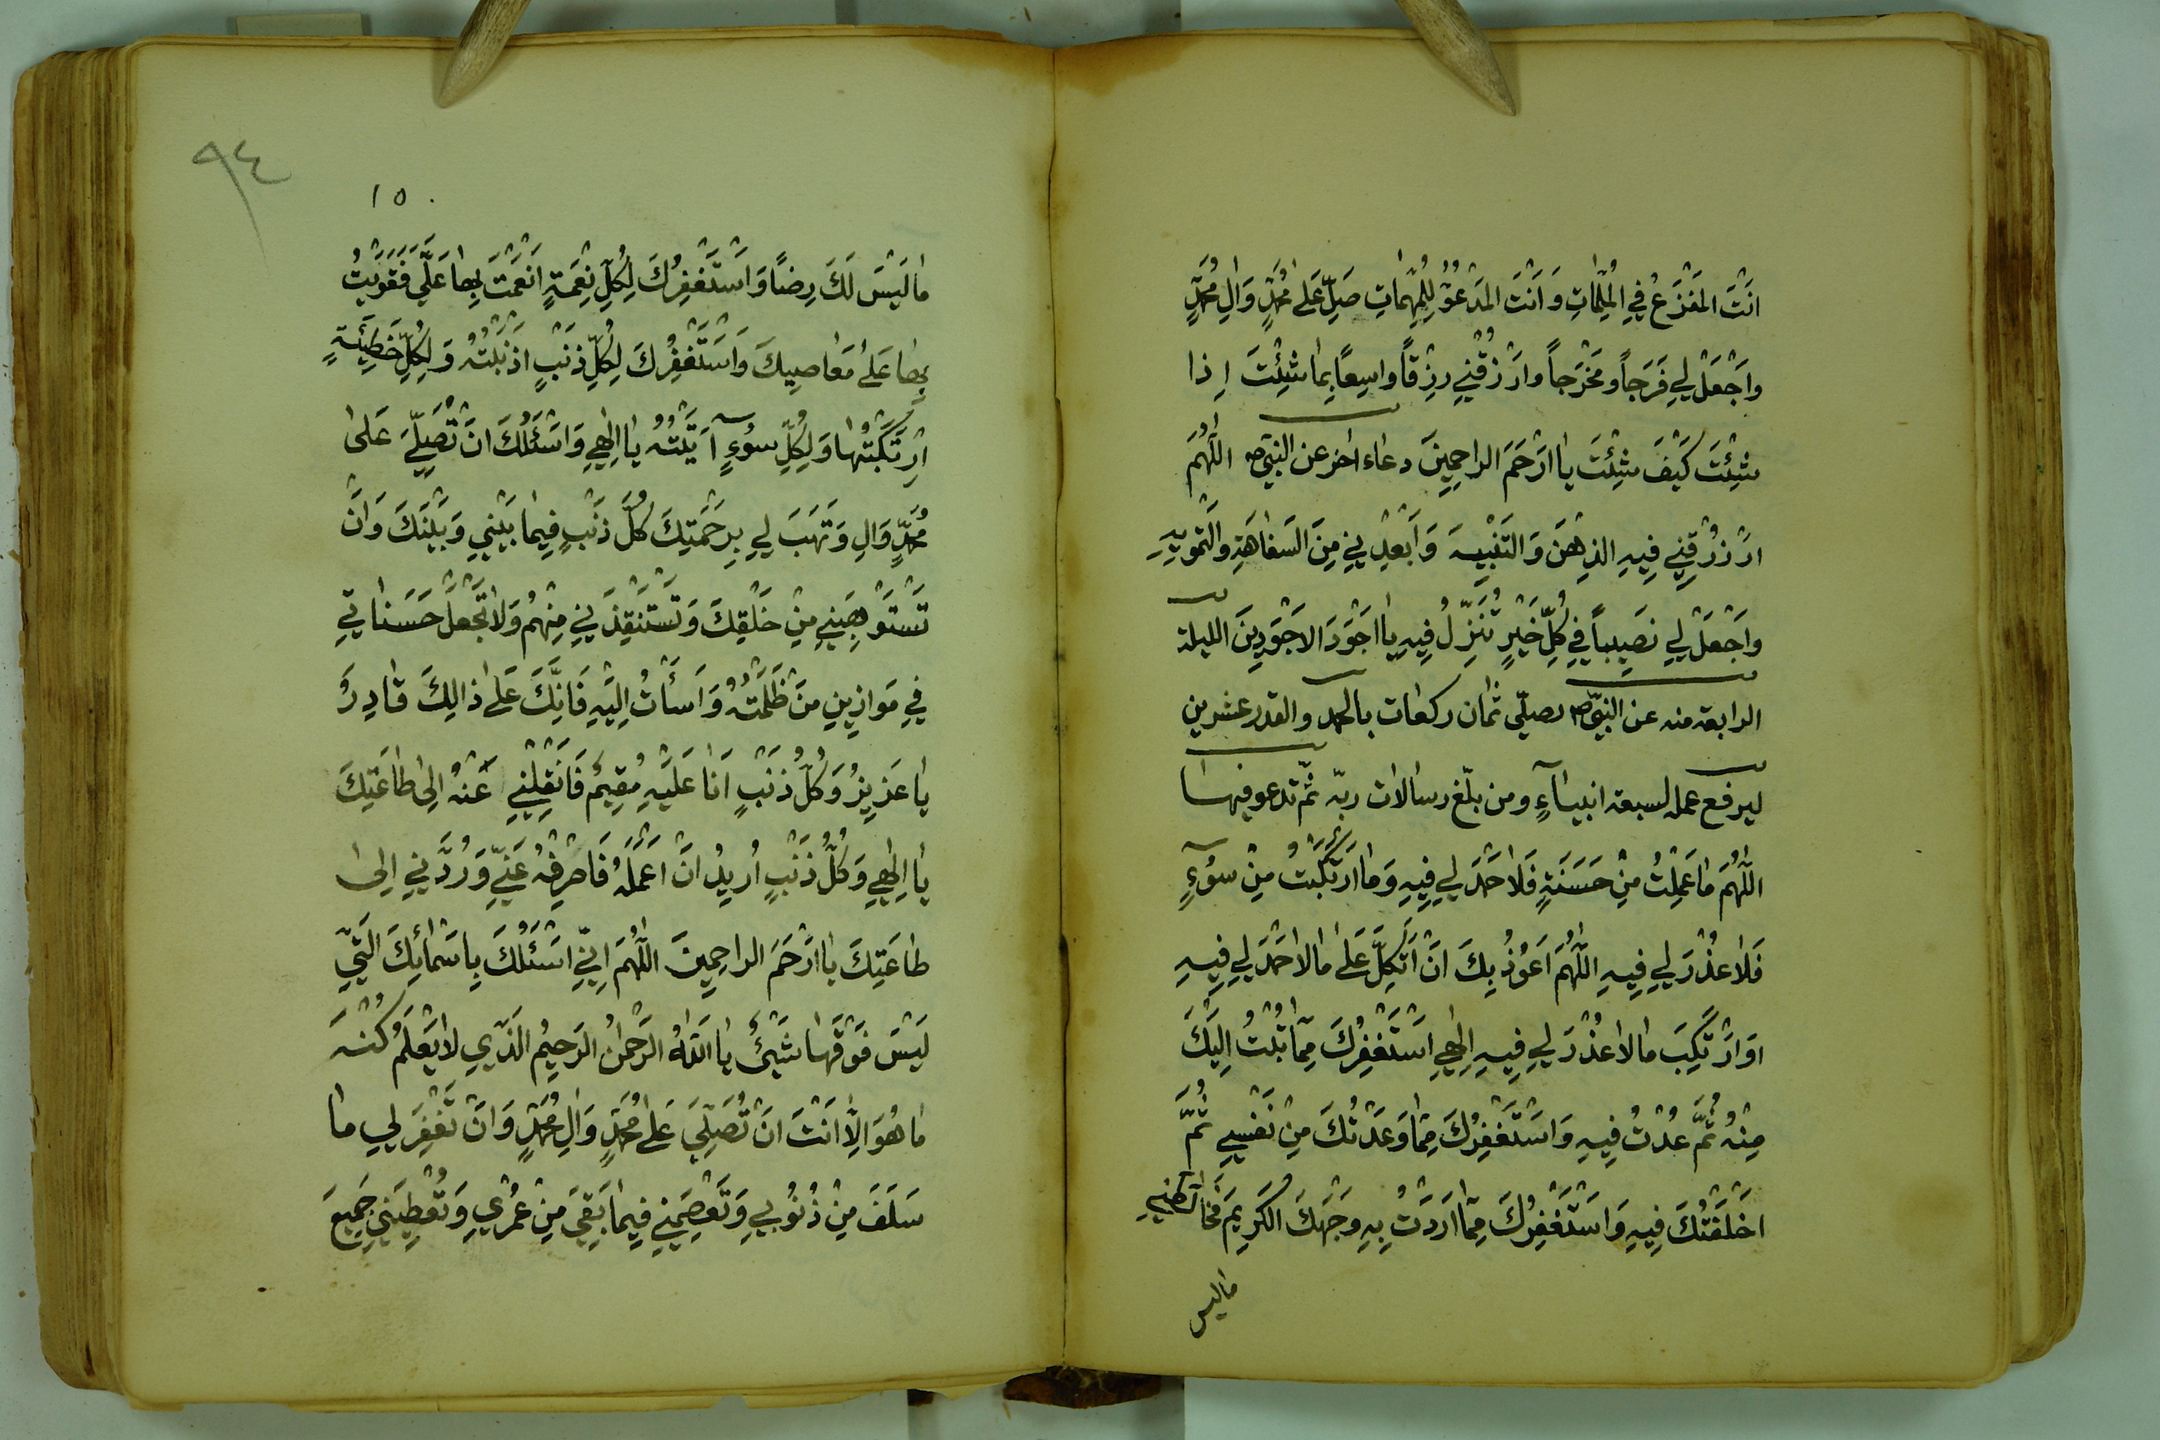 اَنْتَ المَفْزَعُ فِي المُلِمّاتِ وَ اَنْتَ المَدْعُوُّ لِلْمُهِمّاتِ صَلِّ عَلىٰ مُحَمَّدٍ وَالِ مُحَمَّدٍ
واجْعَلْ لِي فَرَجاً ومَخْرَجاً وارْزُقْنِي رِزْقاً واسِعاً بِما شِئْتَ اِذا
شِئْتَ كَيْفَ شِئْتَ يا اَرْحَمَ الراحِمِينَ دعاء اخر عن النبيّ ص اللّٰهُمَ
ارْزُقْنِي فِيهِ الذِهْنَ وَالتَنْبِيهَ وَاَبْعِدْنِي مِنَ السَفاهَةِ والتَمْوِيهِ
واجْعَلْ لِي نَصِيباً فِي كُلِّ خَيْرٍ تُنَزِّلُ فِيهِ يا اَجْوَدَ الاَجْوَدِينَ الليلة
الرابعة منه عن النبيّ ص يصلّي ثمان ركعات بالحمد والقدر عشرين
ليرفع عمله لسبعة انبيآءٍ ومن بلّغ رسالات ربّه ثمّ تدعو فيها
اللّٰهُمَ ما عَمِلْتُ مِنْ حَسَنَةٍ فَلا حَمْدَ لِي فِيهِ وَما ارْتَكَبْتُ مِنْ سُوءٍ
فَلا عُذْرَ لِي فِيهِ اللّٰهُمَ اَعُوذُ بِكَ اَنْ اَتَّكِلَ عَلىٰ ما لا حَمْدَ لِي فِيهِ
اَوْ اَرْتَكِبَ ما لا عُذْرَ لِي فِيهِ اِلٰهِي اَسْتَغْفِرُكَ مِمّا تُبْتُ اِلَيْكَ
مِنْهُ ثُمَّ عُدْتُ فِيهِ وَاَسْتَغْفِرُكَ مِمّا وَعَدْتُكَ مِنْ نَفْسِي ثُمَّ
اَخْلَفْتُكَ فِيهِ وَاَسْتَغْفِرُكَ مِمّا اَرَدْتُ بِهِ وَجْهَكَ الكَرِيمَ فَخالَطَنِي
ماليس
٩٤
١٥٠
ما لَيْسَ لَكَ رِضًا وَاَسْتَغْفِرُكَ لِكُلِّ نِعْمَةٍ اَنْعَمْتَ بِها عَلَيَّ فَقَوِيتُ
بِها عَلىٰ مَعاصِيكَ وَاَسْتَغْفِرُكَ لِكُلِّ ذَنْبٍ اَذْنَبْتُهُ وَ لِكُلِّ خَطِيئَةٍ
ارْتَكَبْتُها وَ لِكُلِّ سُوءٍ آتَيْتُهُ يا اِلٰهِي وَاَسْئَلُكَ اَنْ تُصَلِّيَ عَلىٰ
مُحَمَّدٍ وَالِهِ وَتَهَبَ لِي بِرَحْمَتِكَ كُلَّ ذَنْبٍ فِيما بَيْنِي وَبَيْنَكَ وَاَنْ
تَسْتَوْهِبَنِي مِنْ خَلْقِكَ وَتَسْتَنْقِذَنِي مِنْهُمْ وَلا تَجْعَلْ حَسَناتِي
فِي مَوازِينِ مَنْ ظَلَمْتُهُ وَاَسَأْتُ اِلَيْهِ فَاِنَّكَ عَلىٰ ذالِكَ قادِرٌ
يا عَزِيزُ وَكُلُّ ذَنْبٍ اَنا عَلَيْهِ مُقِيمٌ فَانْقُلْنِي عَنْهُ اِلىٰ طاعَتِكَ
يا اِلٰهِي وَكُلُّ ذَنْبٍ اُرِيدُ اَنْ اَعْمَلَهُ فَاصْرِفْهُ عَنِّي وَرُدَّنِي اِلىٰ
طاعَتِكَ يا اَرْحَمَ الراحِمِينَ اللّٰهُمَ اِنِّي اَسْئَلُكَ بِاَسْمائِكَ الَّتِي
لَيْسَ فَوْقَها شَيْئٌ يا اَللّٰهُ الرَحْمٰنُ الرَحِيمُ الَذِي لا يَعْلَمُ كُنْهَ
ما هُوَ اِلّا اَنْتَ اَنْ تُصَلِّيَ عَلىٰ مُحَمَّدٍ وَالِ مُحَمَّدٍ وَاَنْ تَغْفِرَ لِي ما
سَلَفَ مِنْ ذُنُوبِي وَتَعْصِمَنِي فِيما بَقِيَ مِنْ عُمْرِي وَتُعْطِيَنِي جَمِيعَ